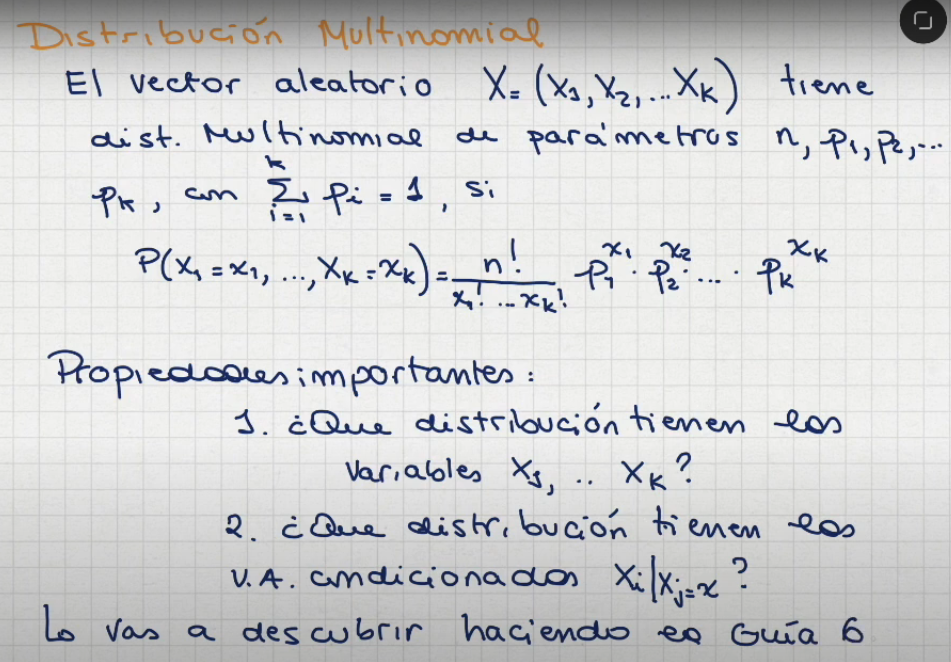 Distribución Multinomial
El vector aleatorio X = (X1, X2, ... Xk) tiene
dist. Multinomial de parámetros n, p1, p2, ...
pk, con ∑_{i=1}^{k} pi = 1, si
P(X1 = x1, ..., Xk = xk) = n! / (x1! ... xk!) p1^{x1} · p2^{x2} · ... · pk^{xk}
Propiedades importantes:
1. ¿Que distribución tienen las
variables X1, .. Xk?
2. ¿Que distribución tienen las
V.A. condicionadas Xi|Xj=x ?
Lo vas a descubrir haciendo la Guía 6